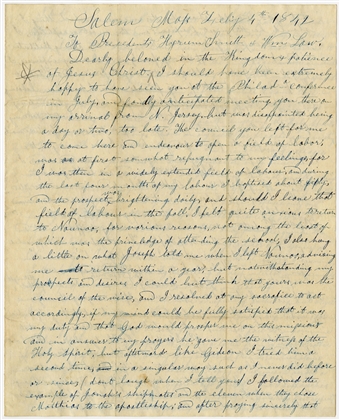 Salem Mass Feby 4th 1842
To Presidents Hyrum Smith & Wm Law.
Dearly beloved in the Kingdom & patience
of Jesus Christ, I should have been extremely
happy to have seen you at the Philad. conference
in July, and partly anticipated meeting you there on
my arrival from N. Jersey, but was disappointed being
a day or two, too late. The counsel you left for me
to come here and endeavour to open a field of labor,
was at first somewhat repugnant to my feelings, for
I was then in a widely extended field of labour, and during
the last four months of my labour I baptised about fifty,
and the prospects brightening daily and should I leave that
field of labour in the fall, I felt anxious to return
to Nauvoo, for various reasons, not among the least of
which was the privilege of attending the school, I also hung
a little on what Joseph told me when I left Nauvoo, advising
me to return within a year, but notwithstanding my
prospects and desires I could but think that yours was the
counsel of the wise, and I resolved at any sacrifice to act
accordingly, if my mind could be fully satisfied that it was
my duty and that God would prosper me on this mission
and in answer to my prayers he gave me the witness of the
Holy Spirit, but afterward like Gideon I tried him a
second time, and in a singular way such as I never did before
or since, (don't laugh when I tell you) I followed the
example of Jonah's shipmates and the eleven when they chose
Matthias to the apostleship, and after praying sincerely that